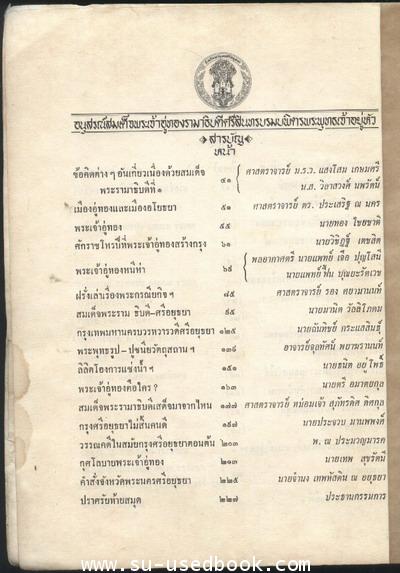 อนุสรณ์สมเด็จพระเจ้าอู่ทองรามาธิบดีศรีสินทรบรมบพิตรพระพุทธเจ้าอยู่หัว
สารบัญ
หน้า
ข้อคิดต่าง ๆ อันเกี่ยวเนื่องด้วยสมเด็จ
พระรามาธิบดีที่ ๑ ๔๑ ศาสตราจารย์ ม.ร.ว. แสงโสม เกษมศรี
น.ส. วิลาสวงศ์ นพรัตน์
เมืองอู่ทองและเมืองอโยธยา ๕๑ ศาสตราจารย์ ดร. ประเสริฐ ณ นคร
พระเจ้าอู่ทอง ๕๕ นายทอง ไชยชาติ
ศักราชโหรปีที่พระเจ้าอู่ทองสร้างกรุง ๖๑ นายวิธิฏฐ์ เตชสิต
พระเจ้าอู่ทองหนีห่า ๖๕ พลอากาศตรี นายแพทย์ เจือ ปุญโสนี
นายแพทย์ ฝน ปุณยะรัตเวช
ฝรั่งเล่าเรื่องพระกรณียกิจ ฯ ๘๕ ศาสตราจารย์ รอง ศยามานนท์
สมเด็จพระราม ธิบดี-ศรีอยุธยา ๙๕ นายมานิต วัลลิโภดม
กรุงเทพมหานครบวรทวารวดีศรีอยุธยา ๑๒๕ นายฉันทิชย์ กระแสสินธุ์
พระพุทธรูป - ปูชนียวัตถุสถาน ฯ ๑๓๙ อาจารย์จุลทัศน์ พยาฆรานนท์
ลิลิตโองการแช่งน้ำ ฯ ๑๕๑ นายธนิต อยู่โพธิ์
พระเจ้าอู่ทองคือใคร ? ๑๖๓ นายตรี อมาตยกุล
สมเด็จพระรามาธิบดีเสด็จมาจากไหน ๑๗๗ ศาสตราจารย์ หม่อมเจ้า สุภัทรดิศ ดิศกุล
กรุงศรีอยุธยาไม่สิ้นคนดี ๑๙๗ นายประจวบ มานพพงศ์
วรรณคดีในสมัยกรุงศรีอยุธยาตอนต้น ๒๐๓ พ. ณ ประมวญมารค
กุศโลบายพระเจ้าอู่ทอง ๒๑๓ นายเทพ สุขรัตนี
คำสั่งจังหวัดพระนครศรีอยุธยา ๒๒๕ นายจำนง เทพหัสดิน ณ อยุธยา
ปราศรัยท้ายสมุด ๒๒๗ ประธานกรรมการ
www.su-usedbook.com